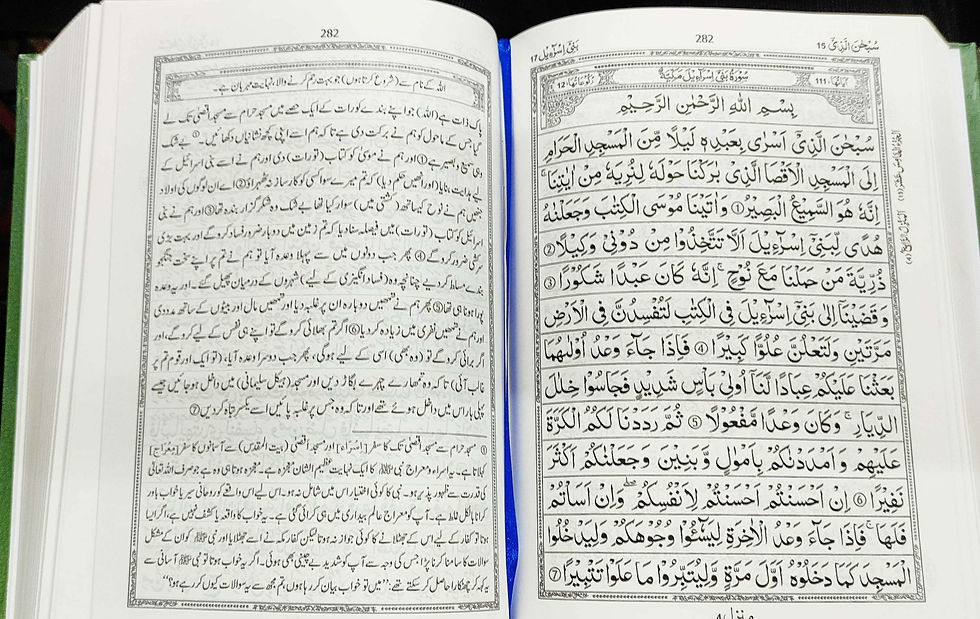 سُبْحٰنَ الَّذِيْٓ 15
282
بَنِيْٓ اِسْرَآءِيْل 17
اٰيَاتُهَا 111
سُوْرَةُ بَنِيْٓ اِسْرَآءِيْلَ مَكِّيَّةٌ
رُكُوْعَاتُهَا 12
بِسْمِ اللهِ الرَّحْمٰنِ الرَّحِيْمِ
سُبْحٰنَ الَّذِيْٓ اَسْرٰى بِعَبْدِهٖ لَيْلًا مِّنَ الْمَسْجِدِ الْحَرَامِ
اِلَى الْمَسْجِدِ الْاَقْصَا الَّذِيْ بٰرَكْنَا حَوْلَهٗ لِنُرِيَهٗ مِنْ اٰيٰتِنَا ۚ
اِنَّهٗ هُوَ السَّمِيْعُ الْبَصِيْرُ ① وَاٰتَيْنَا مُوْسَى الْكِتٰبَ وَجَعَلْنٰهُ
هُدًى لِّبَنِيْٓ اِسْرَآءِيْلَ اَلَّا تَتَّخِذُوْا مِنْ دُوْنِيْ وَكِيْلًا ②
ذُرِّيَّةَ مَنْ حَمَلْنَا مَعَ نُوْحٍ ۚ اِنَّهٗ كَانَ عَبْدًا شَكُوْرًا ③
وَقَضَيْنَآ اِلٰى بَنِيْٓ اِسْرَآءِيْلَ فِي الْكِتٰبِ لَتُفْسِدُنَّ فِي الْاَرْضِ
مَرَّتَيْنِ وَلَتَعْلُنَّ عُلُوًّا كَبِيْرًا ④ فَاِذَا جَآءَ وَعْدُ اُوْلٰىهُمَا
بَعَثْنَا عَلَيْكُمْ عِبَادًا لَّنَآ اُولِيْ بَاْسٍ شَدِيْدٍ فَجَاسُوْا خِلٰلَ
الدِّيَارِ ۚ وَكَانَ وَعْدًا مَّفْعُوْلًا ⑤ ثُمَّ رَدَدْنَا لَكُمُ الْكَرَّةَ
عَلَيْهِمْ وَاَمْدَدْنٰكُمْ بِاَمْوَالٍ وَّبَنِيْنَ وَجَعَلْنٰكُمْ اَكْثَرَ
نَفِيْرًا ⑥ اِنْ اَحْسَنْتُمْ اَحْسَنْتُمْ لِاَنْفُسِكُمْ ۗ وَاِنْ اَسَاْتُمْ
فَلَهَا ۚ فَاِذَا جَآءَ وَعْدُ الْاٰخِرَةِ لِيَسُوْٓءٗا وُجُوْهَكُمْ وَلِيَدْخُلُوا
الْمَسْجِدَ كَمَا دَخَلُوْهُ اَوَّلَ مَرَّةٍ وَّلِيُتَبِّرُوْا مَا عَلَوْا تَتْبِيْرًا ⑦
282
اللہ کے نام سے (شروع کرتا ہوں) جو بہت رحم کرنے والا، نہایت مہربان ہے۔
پاک ذات ہے (اللہ) جو اپنے بندے کو رات کے ایک حصے میں مسجد حرام سے مسجد اقصیٰ تک لے
گیا جس کے ماحول کو ہم نے برکت دی ہے تاکہ ہم اسے اپنی کچھ نشانیاں دکھائیں۔ ① بے شک
وہی سمیع و بصیر ہے ① اور ہم نے موسیٰ کو کتاب (تورات) دی اور ہم نے اسے بنی اسرائیل کے
لیے ہدایت بنایا (اور انھیں حکم دیا) کہ تم میرے سوا کسی کو کارساز نہ ٹھہراؤ ② اے ان لوگوں کی اولاد
جنھیں ہم نے نوح کے ساتھ (کشتی میں) سوار کیا تھا! بے شک وہ شکر گزار بندہ تھا ③ اور ہم نے بنی
اسرائیل کو کتاب (تورات) میں فیصلہ سنا دیا کہ تم زمین میں دوبار ضرور فساد کرو گے اور بہت بڑی
سرکشی ضرور کرو گے ④ پھر جب دونوں میں سے پہلا وعدہ آیا تو ہم نے تم پر اپنے سخت جنگجو
بندے مسلط کر دیے چنانچہ وہ (فساد انگیزی کے لیے) شہروں کے درمیان پھیل گئے۔ اور یہ وعدہ
پورا ہونا ہی تھا ⑤ پھر ہم نے تمھیں دوبارہ ان پر غلبہ دیا اور تمھیں مال اور بیٹوں کے ساتھ مدد دی
اور ہم نے تمھیں نفری میں زیادہ کر دیا ⑥ اگر تم بھلائی کرو گے تو اپنے ہی نفس کے لیے کرو گے، اور
اگر برائی کرو گے تو (وہ بھی) اسی کے لیے ہوگی، پھر جب دوسرا وعدہ آیا، (تو ایک اور قوم تم پر
غالب آئی) تاکہ وہ تمھارے چہرے بگاڑ دیں اور مسجد (ہیکل سلیمانی) میں داخل ہو جائیں جیسے
پہلی بار اس میں داخل ہوئے تھے اور تاکہ وہ جس پر غلبہ پائیں اسے یکسر تباہ کر دیں ⑦
① مسجد حرام سے مسجد اقصیٰ تک کا سفر [اِسْرَاء] اور مسجد اقصیٰ (بیت المقدس) سے آسمانوں کا سفر [مِعْرَاج]
کہلاتا ہے۔ یہ اسراء و معراج نبی ﷺ کا ایک نہایت عظیم الشان معجزہ ہے۔ معجزہ ہوتا ہی وہ ہے جو صرف اللہ تعالیٰ
کی قدرت سے ظہور پذیر ہو۔ نبی کا کوئی اختیار اس میں شامل نہ ہو۔ اس لیے اس واقعے کو روحانی سیر یا خواب باور
کرانا بالکل غلط ہے۔ آپ کو معراج عالم بیداری میں ہی کرائی گئی ہے۔ یہ خواب کا واقعہ یا کشف نہیں ہے، اگر ایسا
ہوتا تو کفار کے لیے اس کے جھٹلانے کا کوئی جواز نہ ہوتا لیکن کفار مکہ نے اسے جھٹلایا اور نبی ﷺ کو ان کے مشکل
سوالات کا سامنا کرنا پڑا جس کی وجہ سے آپ کو شدید بے چینی بھی ہوئی۔ اگر یہ خواب ہوتا تو نبی ﷺ آسانی سے
یہ کہہ کر چھٹکارا حاصل کر سکتے تھے: ”میں تو خواب بیان کر رہا ہوں، تم مجھ سے یہ سوالات کیوں کر رہے ہو؟“